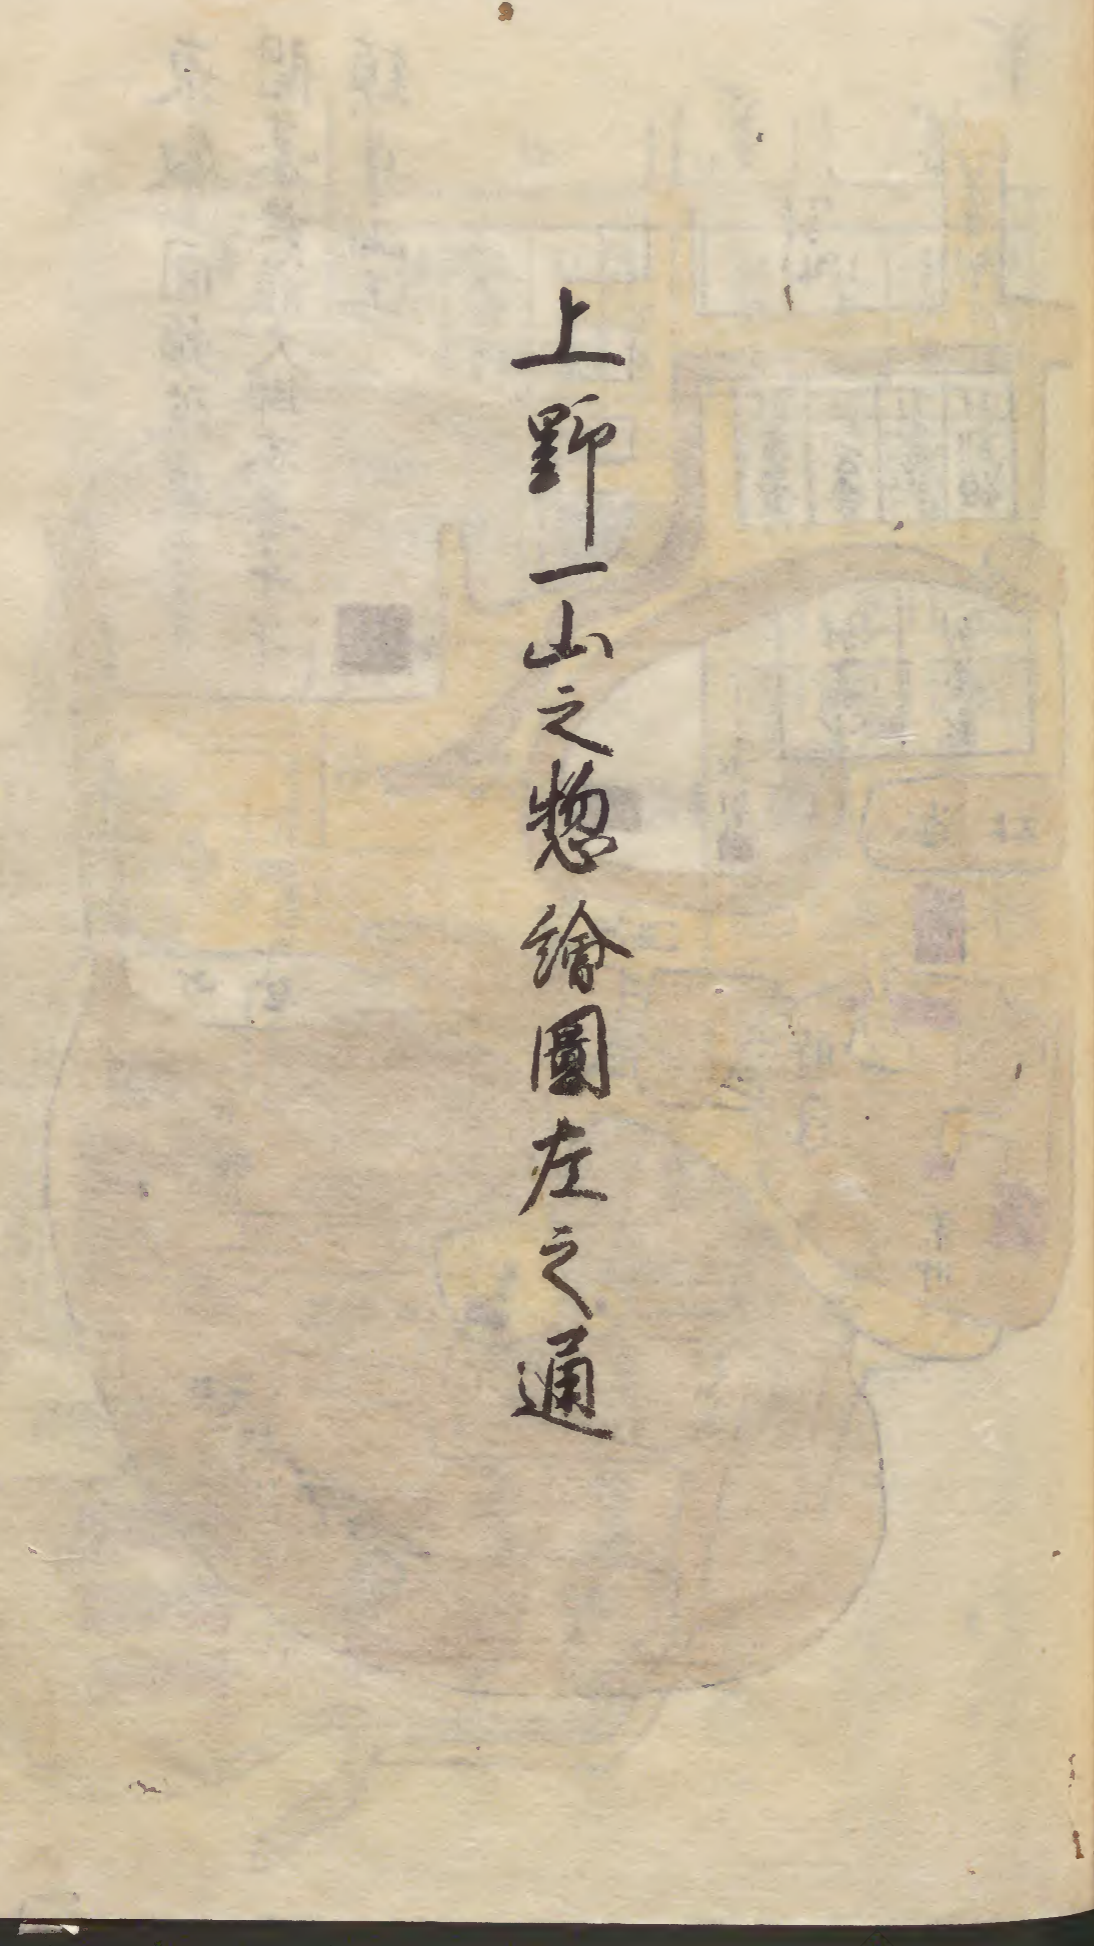 上野一山之惣繪圖左之通